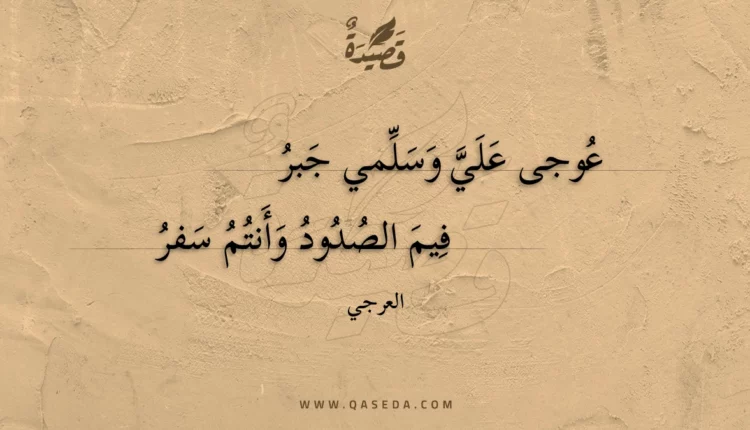 قَصِيدَةٌ
عُوجى عَلَيَّ وَسَلِّمي جَبرُ
فِيمَ الصُدُودُ وَأَنتُمُ سَفرُ
العرجي
WWW.QASEDA.COM